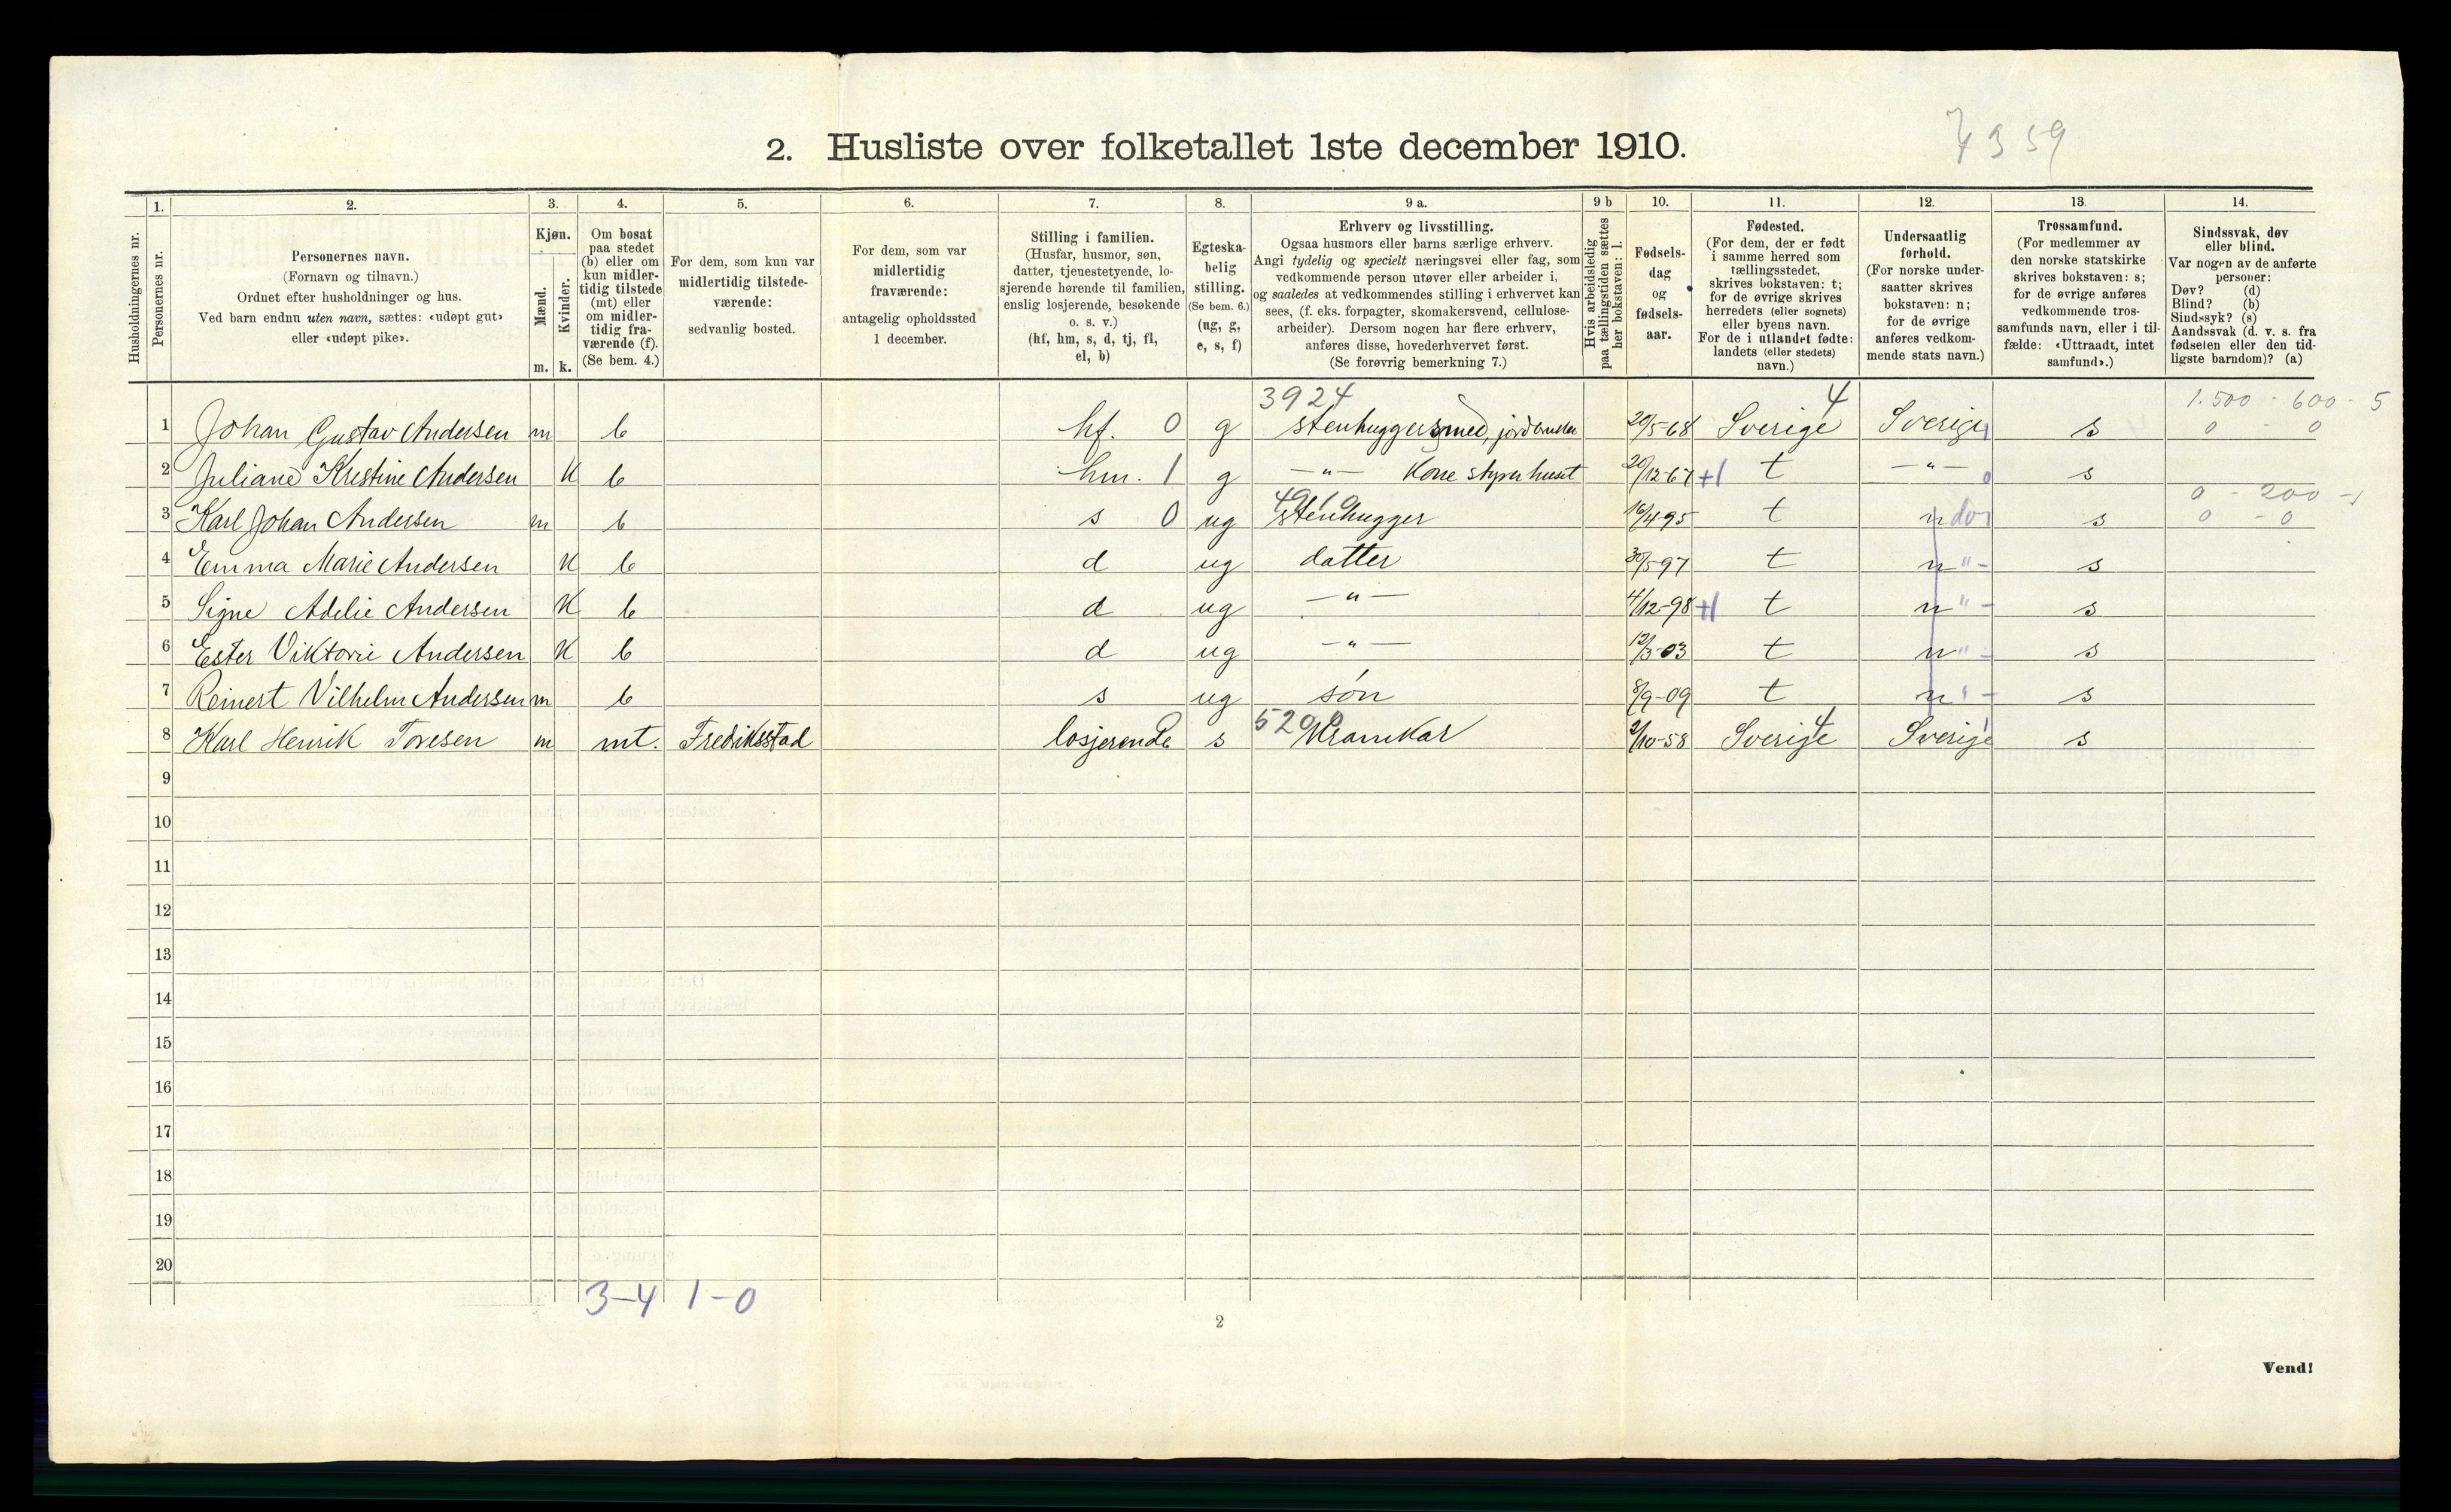 7359
2. Husliste over folketallet 1ste december 1910.
Husholdningernes nr.
1. Personernes nr.
2. Personernes navn.
(Fornavn og tilnavn.)
Ordnet efter husholdninger og hus.
Ved barn endnu uten navn, sættes: «udøpt gut»
eller «udøpt pike».
3. Kjøn.
Mænd. m.
Kvinder. k.
4. Om bosat
paa stedet
(b) eller om
kun midler-
tidig tilstede
(mt) eller
om midler-
tidig fra-
værende (f).
(Se bem. 4.)
5. For dem, som kun var
midlertidig tilstede-
værende:
sedvanlig bosted.
6. For dem, som var
midlertidig
fraværende:
antagelig opholdssted
1 december.
7. Stilling i familien.
(Husfar, husmor, søn,
datter, tjenestetyende, lo-
sjerende hørende til familien,
enslig losjerende, besøkende
o. s. v.)
(hf, hm, s, d, tj, fl,
el, b)
8. Egteska-
belig
stilling.
(Se bem. 6.)
(ug, g,
e, s, f)
9 a. Erhverv og livsstilling.
Ogsaa husmors eller barns særlige erhverv.
Angi tydelig og specielt næringsvei eller fag, som
vedkommende person utøver eller arbeider i,
og saaledes at vedkommendes stilling i erhvervet kan
sees, (f. eks. forpagter, skomakersvend, cellulose-
arbeider). Dersom nogen har flere erhverv,
anføres disse, hovederhvervet først.
(Se forøvrig bemerkning 7.)
9 b Hvis arbeidsledig
paa tællingstiden sættes
her bokstaven: l.
10. Fødsels-
dag
og
fødsels-
aar.
11. Fødested.
(For dem, der er født
i samme herred som
tællingsstedet,
skrives bokstaven: t;
for de øvrige skrives
herredets (eller sognets)
eller byens navn.
For de i utlandet fødte:
landets (eller stedets)
navn.)
12. Undersaatlig
forhold.
(For norske under-
saatter skrives
bokstaven: n;
for de øvrige
anføres vedkom-
mende stats navn.)
13. Trossamfund.
(For medlemmer av
den norske statskirke
skrives bokstaven: s;
for de øvrige anføres
vedkommende tros-
samfunds navn, eller i til-
fælde: «Uttraadt, intet
samfund».)
14. Sindssvak, døv
eller blind.
Var nogen av de anførte
personer:
Døv? (d)
Blind? (b)
Sindssyk? (s)
Aandssvak (d. v. s. fra
fødselen eller den tid-
ligste barndom)? (a)
3924 4 1.500 - 600 - 5
1 Johan Gustav Andersen m b hf. 0 g stenhuggersmed, jordbruker 20/5-68 Sverige Sverige s 0 - 0
2 Juliane Kristine Andersen K b hm. 1 g —„— Kone styrer huset 20/12-67 +1 t —„— s
4910 0 - 200 -
3 Karl Johan Andersen m b s 0 ug stenhugger 16/4-95 t n do s 0 - 0
4 Emma Marie Andersen K b d ug datter 30/5-97 t n "- s
5 Signe Adelie Andersen K b d ug —„— 4/12-98 +1 t n "- s
6 Ester Viktorie Andersen K b d ug —„— 12/3-03 t n "- s
7 Reinert Vilhelm Andersen m b s ug søn 8/9-09 t n "- s
8 Karl Henrik Toresen m mt. Fredriksstad losjerende s Kramkar 2/10-58 Sverige 4 Sverige s
9
10
11
12
13
14
15
16
17
18
19
20
3-4 1-0
2
Vend!